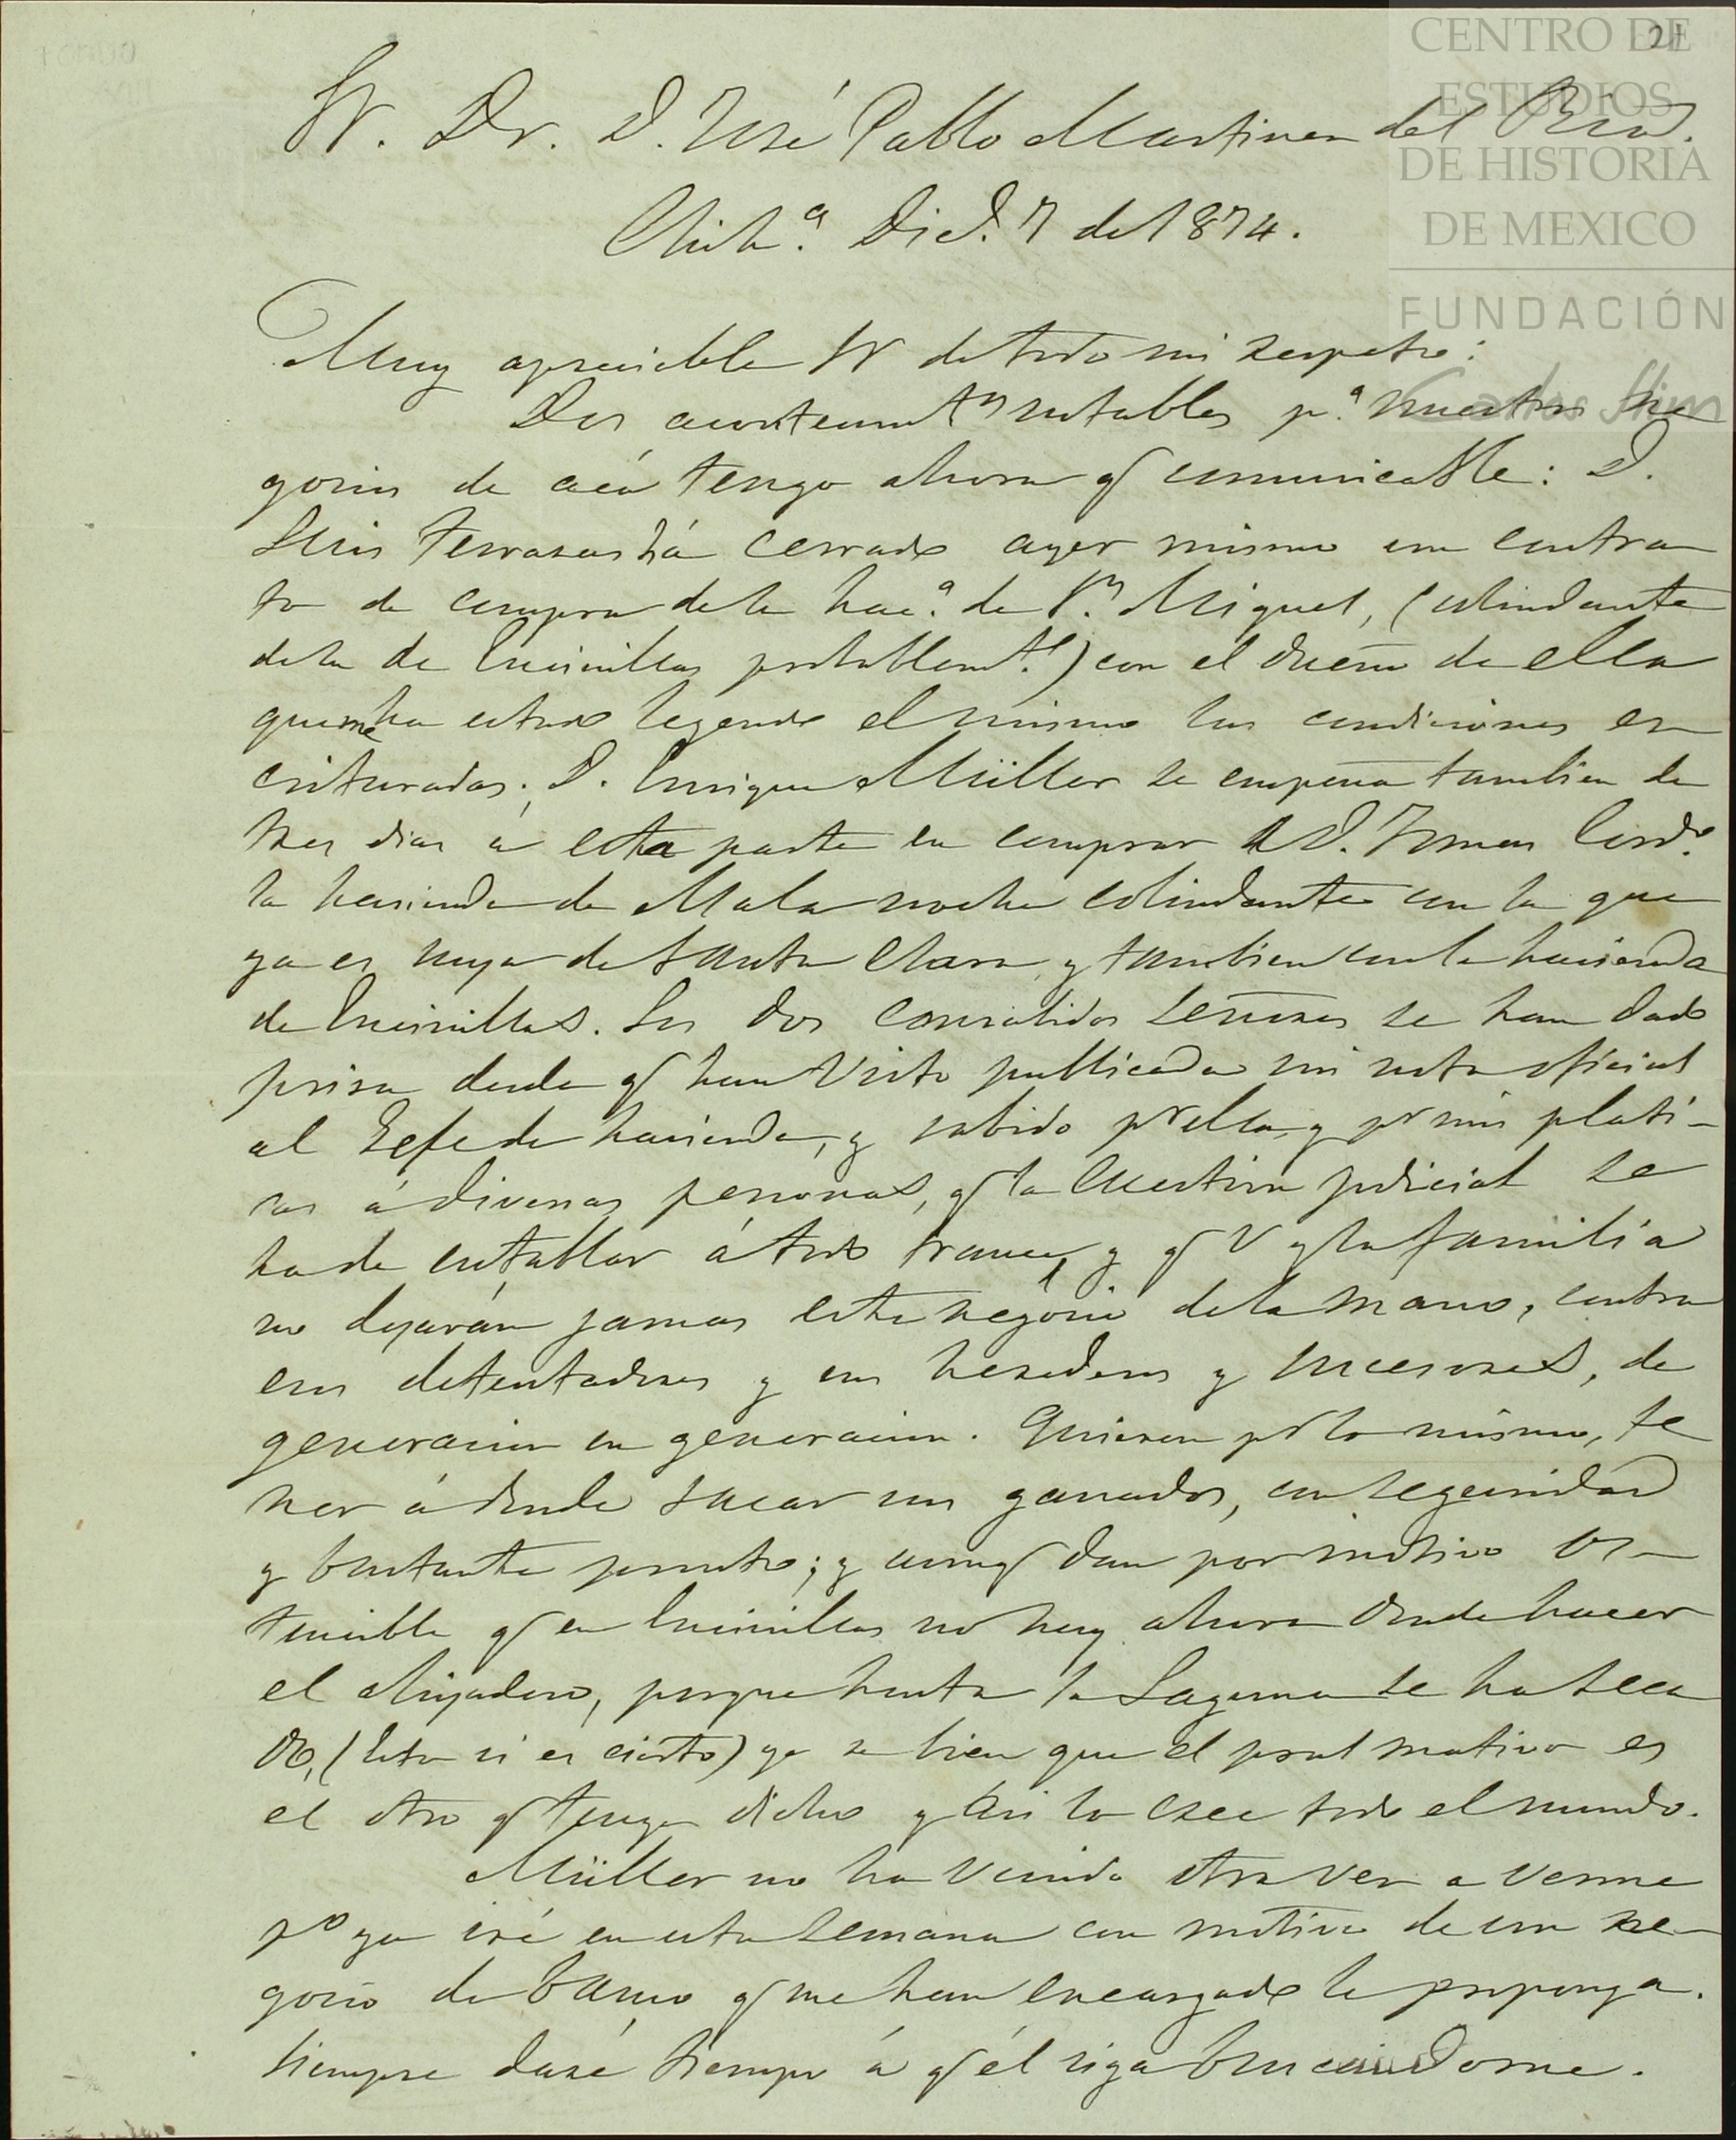 21
CENTRO DE
ESTUDIOS
DE HISTORIA
DE MEXICO
FUNDACIÓN
Carlos Slim
Sr. Dr. D. José Pablo Martinez del Rio.
Chih.ª Dic.e 7 de 1874.
Muy apreciable Sr de todo mi respeto:
Dos acontecimt.os notables p.ª nuestros ne
gocios de acá tengo ahora q comunicarle: D.
Luis Terrazas há cerrado ayer mismo un contra
to de compra de la hac.ª de S.n Miguel, (colindante
de la de Encinillas probablem.te) con el dueño de ella
quien me ha estado leyendo el mismo las condiciones es
crituradas; D. Enrique Müller se empeña tambien de
tres dias á esta parte en comprar á D. Tomas Cord.o
la hacienda de Mala noche colindante con la que
ya es suya de Santa Clara, y tambien con la hacienda
de Encinillas. Los dos consabidos señores se han dado
prisa desde q han visto publicada mi nota oficial
al Gefe de hacienda, y sabido pr ella, y pr mis pláti-
cas á diversas personas, q la cuestion judicial se
ha de entablar á todo trance, y q V y la familia
no dejarán jamas este negocio de la mano, contra
esos detentadores y sus herederos y sucesores, de
generacion en generacion. Quieren pr lo mismo, te
ner á donde sacar sus ganados, con seguridad
y bastante pronto; y aunq dan por motivo os-
tensible q en Encinillas no hay ahora donde hacer
el ahijadero, porque hasta la Laguna se ha seca
do, (Esto si es cierto) yo se bien que el pral motivo es
el otro q tengo dicho y así lo cree todo el mundo.
Müller no ha venido otra vez a verme
p.o yo iré en esta semana con motivo de un ne-
gocio de banco q me han encargado le proponga.
Siempre daré tiempo á q él siga buscandome.